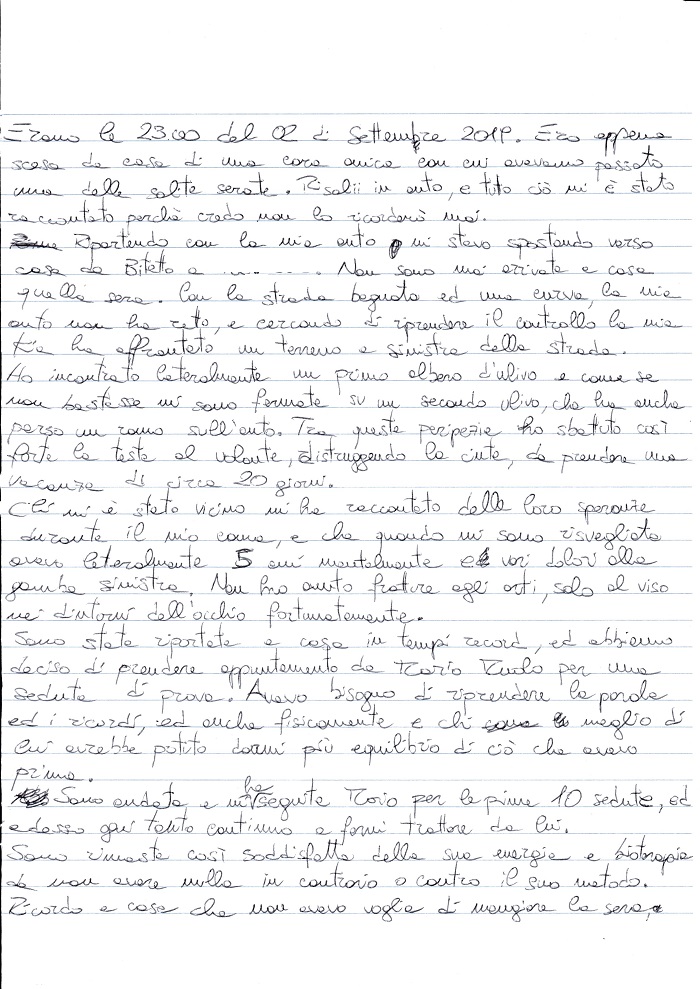 Erano le 23:00 del 02 di Settembre 2019. Ero appena
scesa da casa di una cara amica con cui avevamo passato
una delle solite serate. Risalii in auto, e tuto ciò mi è stato
raccontato perchè credo non lo ricorderò mai.
Ripartendo con la mia auto mi stavo spostando verso
casa da Bitetto a ........... Non sono mai arrivata a casa
quella sera. Con la strada bagnata ed una curva, la mia
auto non ha retto, e cercando di riprendere il controllo la mia
ha affrontato un terreno a sinistra della strada.
Ho incontrato lateralmente un primo albero d'ulivo e come se
non bastasse mi sono fermata su un secondo ulivo, che ha anche
perso un ramo sull'auto. Tra queste peripezie ho sbattuto così
forte la testa al volante, distruggendo la cinta, da prendere una
vacanza di circa 20 giorni.
Chi mi è stato vicino mi ha raccontato delle loro speranze
durante il mio coma, e che quando mi sono risvegliata
avevo letteralmente 5 anni mentalmente e vari dolori alla
gamba sinistra. Non ho avuto fratture agli arti, solo al viso
nei d'intorni dell'occhio fortunatamente.
Sono stata riportata a casa in tempi record, ed abbiamo
deciso di prendere appuntamento da Mario Ruolo per una
seduta di prova. Avevo bisogno di riprendere la parola
ed i ricordi, ed anche fisicamente e chi meglio di
lui avrebbe potuto darmi più equilibrio di ciò che avevo
prima.
Sono andata e mi ha seguita Mario per le prime 10 sedute, ed
adesso ogni tanto continuo a farmi trattare da lui.
Sono rimasta così soddisfatta della sua energia e bioterapia
da non avere nulla in contrario o contro il suo metodo.
Ricordo a casa che non avevo voglia di mangiare la sera,